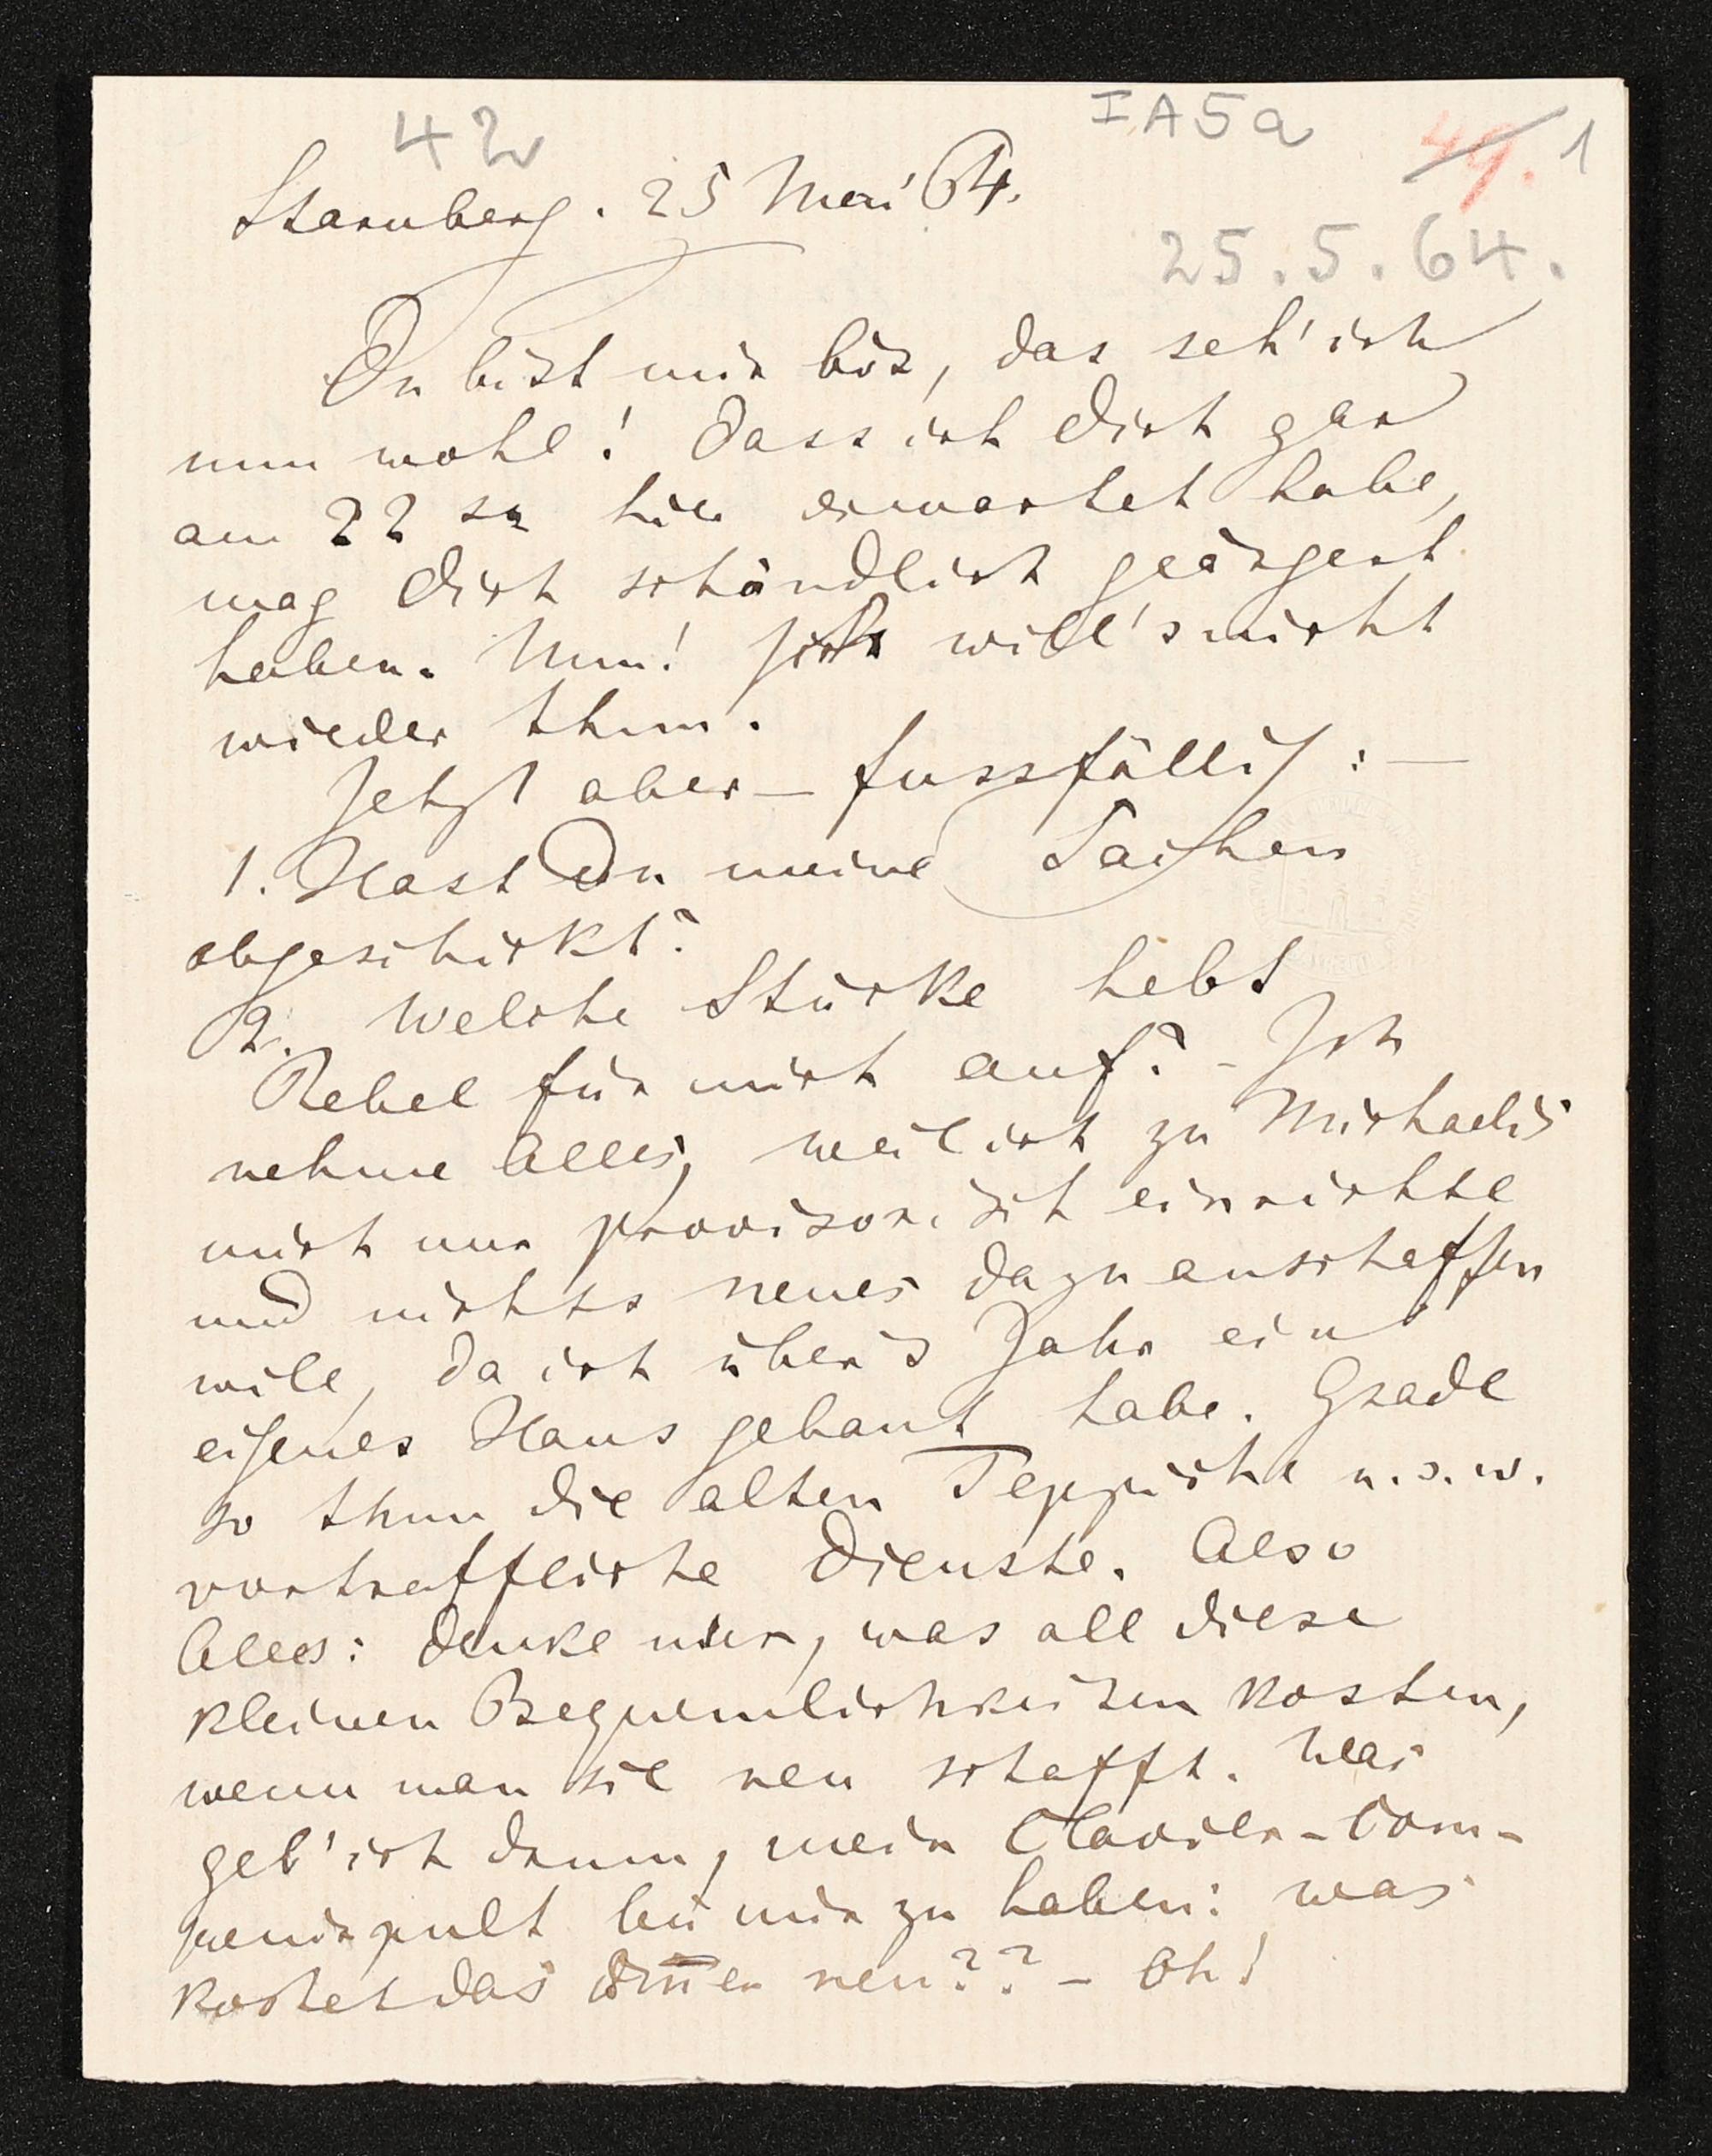 42
IA5a
49. 1
Starnberg. 25 Mai 64.
25.5.64.
Du bist mir bös, das seh' ich
nun wohl! Dass ich Dich gar
am 22 sr hier erwartet habe,
mag Dich schändlich geärgert
haben. Nun! Ich will's nicht
wieder thun.
Jetzt aber — fussfällig: —
1. Hast Du meine Sachen
abgeschickt?
2. Welche Stücke hebt
Rebel für mich auf? - Ich
nehme Alles, weil ich zu Michaelis
mich nur provisorisch einrichte
und nichts neues dazu anschaffen
will, da ich über's Jahr ein
eigenes Haus gebaut habe. Grade
so thun die alten Teppiche u.s.w.
vortreffliche Dienste. Also
Alles: denke nur, was all diese
kleinen Bequemlichkeiten kosten,
wenn man sie neu schafft. Was
geb' ich drum, mein Clavier-Com-
ponirpult bei mir zu haben: was
kostet das immer neu?? — Oh!